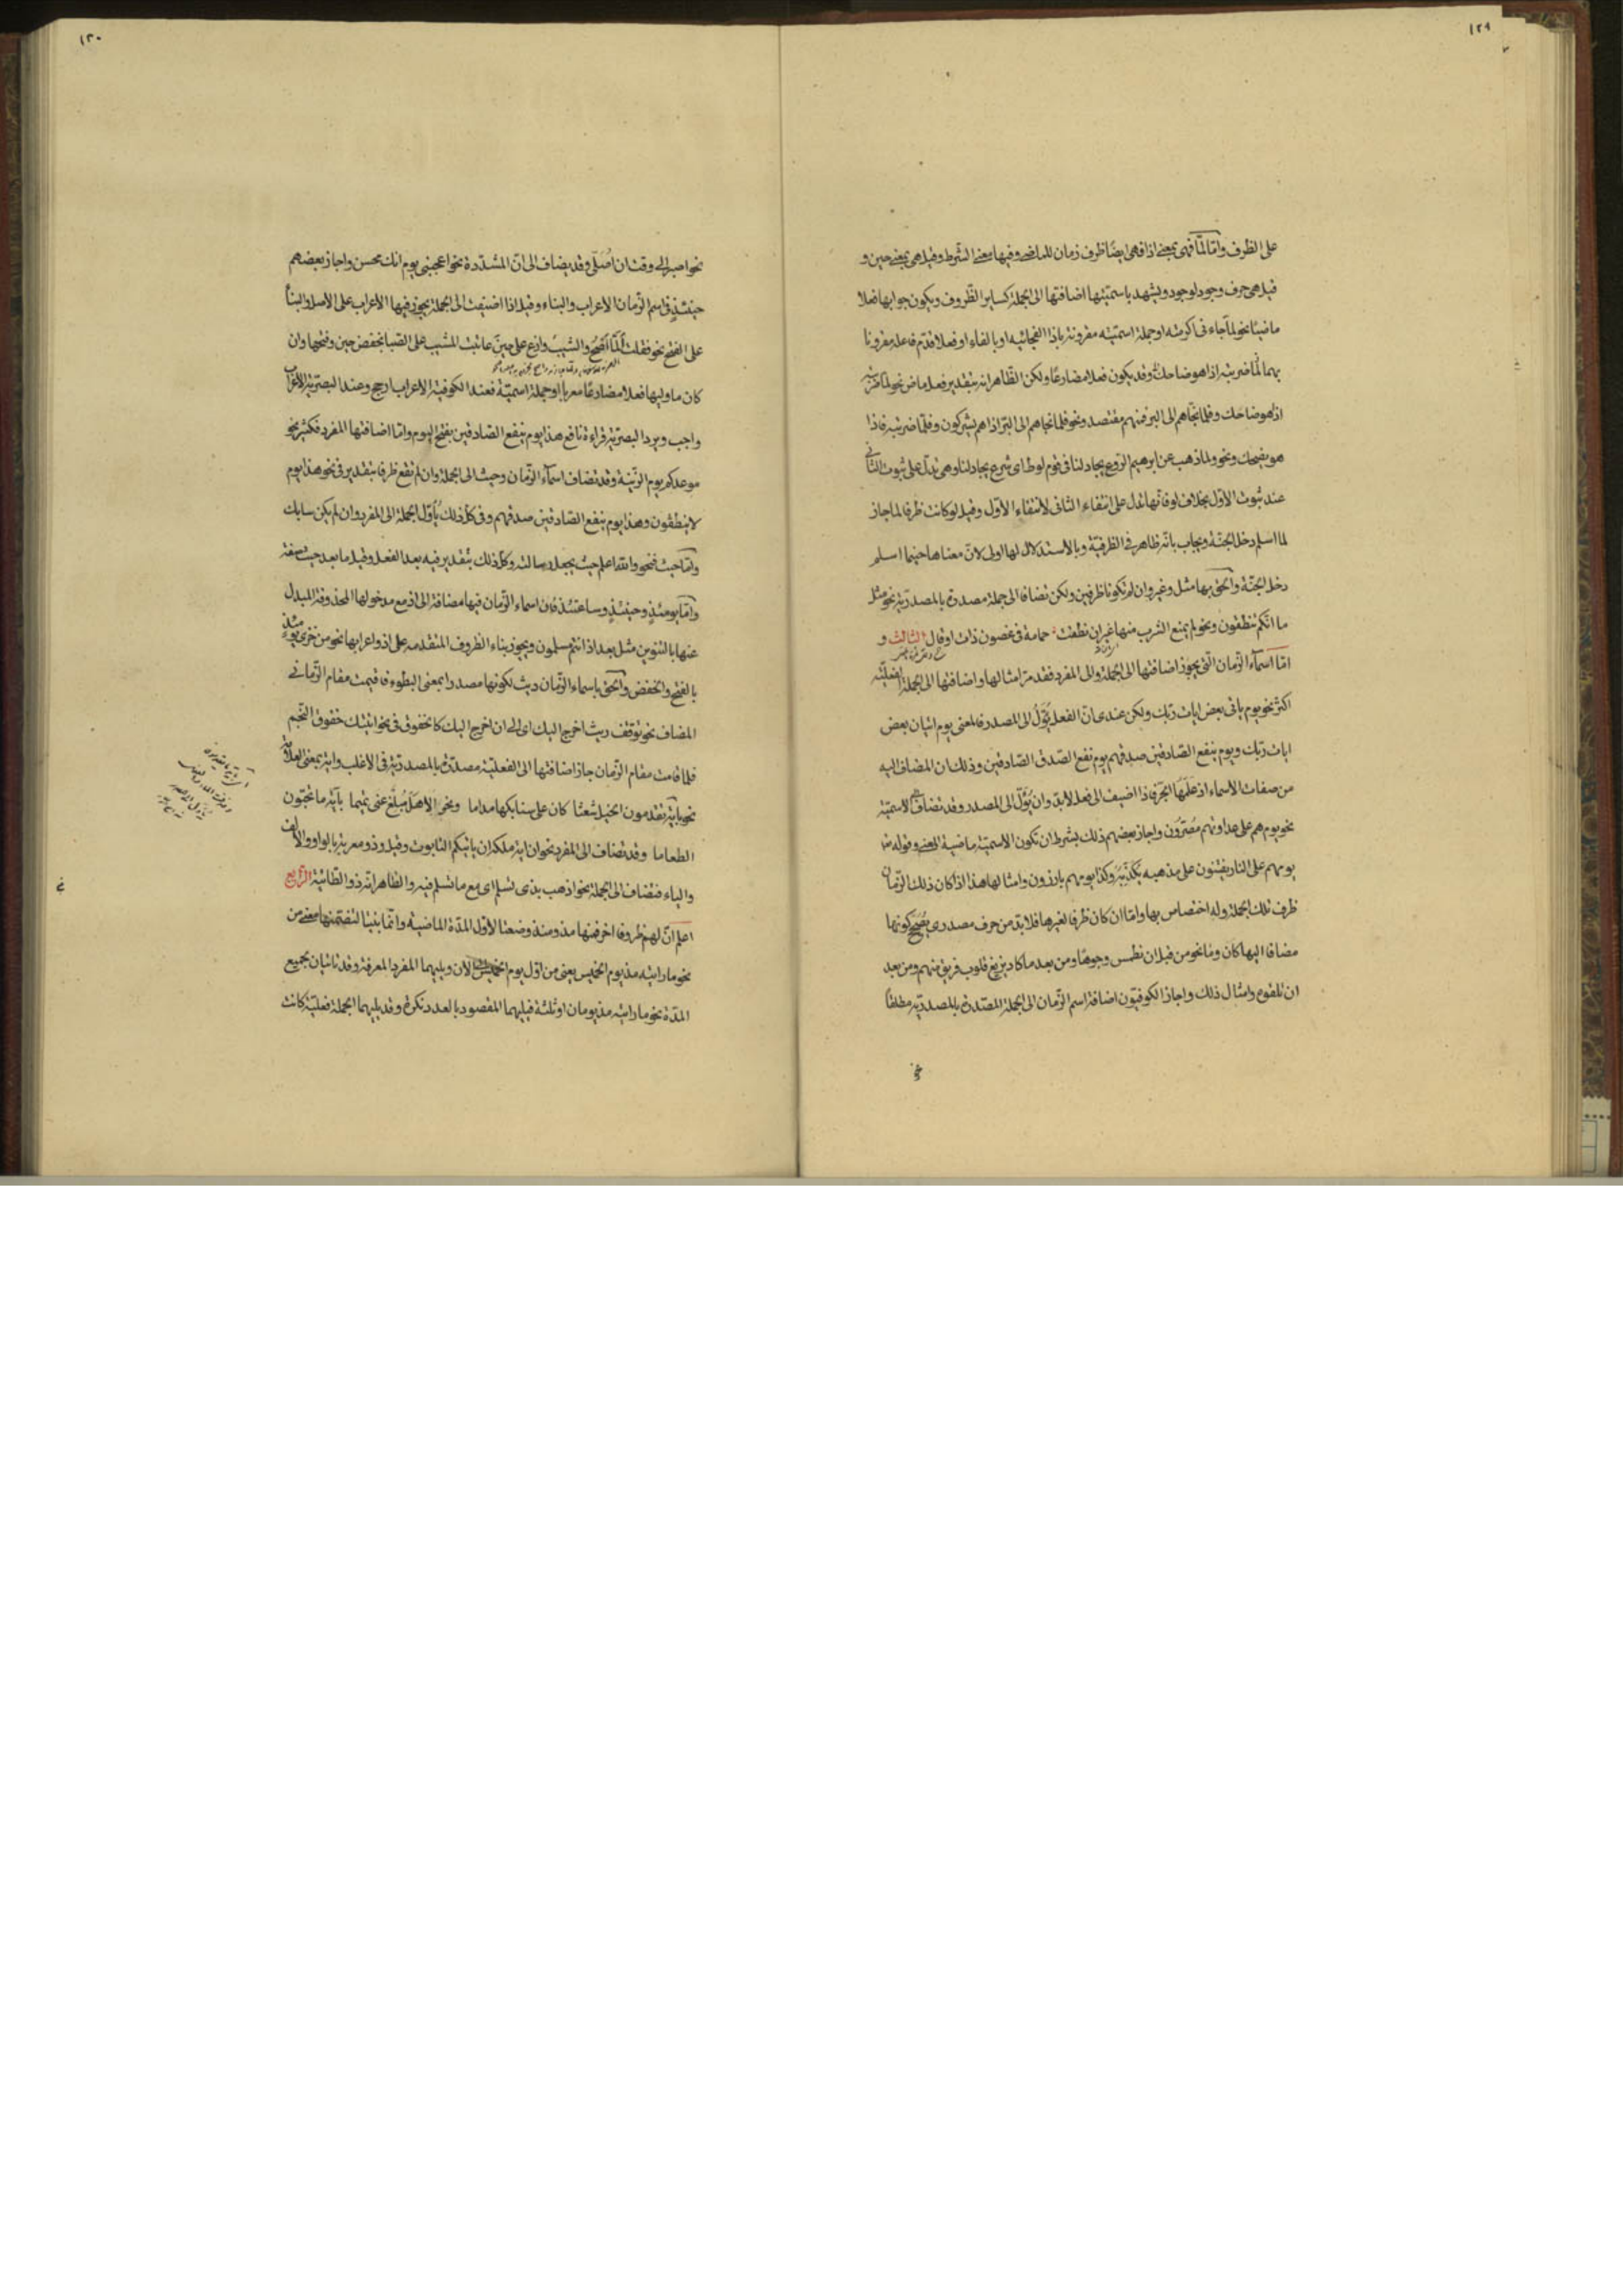 ١٢٩
على الظرف وامّا لمّا فهى بمعنى اذا فهى ايضًا ظرف زمان للماضى وفيها معنى الشّرط وقيل هى بمعنى حين و
قيل هى حرف وجود لوجود ويشهد باسميّتها اضافتها الى الجملة كساير الظّروف ويكون جوابها فعلا
ماضيًا نحو لمّا جاءنى اكرمته او جملة اسميّة مقرونة باذا الفجائيه او بالفاء او فعلا قدّم فاعله مقرونا
بهما لمّا ضربته اذا هو ضاحك وقد يكون فعلا مضارعًا ولكن الظّاهر انه بتقدير فعل ماض نحو لمّا ضربته
اذا هو ضاحك وفلمّا نجّاهم الى البر فمنهم مقتصد ونحو فلما نجاهم الى البرّ اذا هم يشركون وفلمّا ضربته فاذا
هو يضحك ونحو ولما ذهب عن ابرهيم الرّوع يجادلنا فى قوم لوط اى شرع يجادلنا وهى تدلّ على ثبوت الثّانى
عند ثبوت الاوّل بخلاف لو فانّها تدل على انتفاء الثانى لانتفاء الاوّل وقيل لو كانت ظرفا لما جاز
لما اسلم دخل الجنّة ويجاب بانّه ظاهر فى الظرفيّة وبالاستدلال لها اولى لانّ معناها حينما اسلم
دخل الجنّة والحق بها مثل وغير وان لم تكونا ظرفين ولكن تضافا الى جملة مصدرة بالمصدريّة نحو مثل
ما انّكم تنطقون ونحو لم يمنع الشرب منها غير ان نطقت حمامة فى غصون ذات اوقال الثالث و
امّا اسمآء الزّمان الّتى يجوز اضافتها الى الجملة والى المفرد فقد مرّ امثالها واضافتها الى الجملة الفعليّة
اكثر نحو يوم ياتى بعض ايات ربّك ولكن عندى انّ الفعل يُؤَوّلُ الى المصدر فالمعنى يوم اتيان بعض
ايات ربّك ويوم ينفع الصّادقين صدقهم يوم نفع الصّدق الصّادقين وذلك ان المضاف اليه
من صفات الاسماء اذ عَلَمُهَا الجرّ فاذا اضيف الى فعل لابدّ وان يُؤوّل الى المصدر وقد تضاف الى الاسميّة
نحو يوم هم على عداوتهم مُصرّون واجاز بعضهم ذلك بشرط ان تكون الاسميّة ماضية المعنى وقوله تع
يومهم على النار يفتنون على مذهبه وكذا يومهم بارزون وامثالها هذا اذا كان ذلك الزّمان
ظرف تلك الجملة وله اختصاص بها وامّا ان كان ظرفا لغيرها فلابدّ من حرف مصدرى يُصَحّح كونها
مضافا اليها كان وما نحو من قبل ان نطمس وجوهًا ومن بعد ما كاد يزيغ قلوب فريق منهم ومن بعد
ان تلقوه وامثال ذلك واجاز الكوفيّون اضافة اسم الزّمان الى الجملة المصّدرة بالمصدريّه مطلقًا
١٣٠
نحو اصبر الى وقت ان اُصَلّى وقد يضاف الى انّ المشدّدة نحو اعجبنى يوم انّك محسن واجاز بعضهم
حينئذٍ فى اسم الزّمان الاعراب والبناء وقيل اذا اضيفت الى الجملة يجوز فيها الاعراب على الاصل والبنآ
على الفتح نحو فقلت اَلَمّا اَصْحُ والشّيبُ وازع على حين عاتبت المشيب على الصّبا بخفض حين وفتحها وان
كان ما وليها فعلا مضارعًا معربا او جملة اسميّة فعند الكوفية الاعراب ارجح وعند البصريّة الاعراب
واجب ويرد البصريّة قراءة نافع هذا يوم ينفع الصّادقين بفتح اليوم وامّا اضافتها المفرد فكثير نحو
موعدكم يوم الزّينة وقد تضاف اسمآء الزّمان وحيث الى الجملة وان لم تقع ظرفا بتقدير فى نحو هذا يوم
لا ينطقون وهذا يوم ينفع الصّادقين صدقهم وفى كلّ ذلك يُأوّل الجملة الى المفرد وان لم يكن سابك
وامّا حيث فنحو والله اعلم حيث يجعل رسالته وكلّ ذلك بتقدير فيه بعد الفعل وقيل ما بعد حيث صفة
وامّا يومئذٍ وحينئذٍ وساعتئذ فانّ اسماء الزّمان فيها مضافة الى اذ مع مدخولها المحذوفة المبدل
عنها بالتنوين مثل بعد اذ انتم مسلمون ويجوز بناء الظروف المتقدمه على اذ واعرابها نحو من خزى يومئذٍ
بالفتح والخفض والحق باسماء الزّمان ريث لكونها مصدرا بمعنى البطوء فاقيمت مقام الزّمانى
المضاف نحو توقّف ريث اخرج اليك اى الى ان اخرج اليك كالخفوق فى نحو اتيتك خفوق النّجم
فلمّا قامت مقام الزّمان جاز اضافتها الى الفعليّة مصدّرة بالمصدريّة فى الاغلب واية بمعنى العلامة
نحو باية تقدمون الخيل شعثًا كان على سنابكها مداما ونحو الا هل مُبلغ عنى تميما بآية ما تحبّون
الطعاما وقد تضاف الى المفرد نحو ان اية ملكه ان ياتيكم التابوت وقيل وذو معربة بالواو والالف
والياء فتضاف الى الجملة نحو اذهب بذى تسلم اى مع ما تسلم فيه والظاهر انّه ذو الطّائية الرّابع
اعلم انّ لهم ظروفا اخر فمنها مذ ومنذ وضعتا لاوّل المدّة الماضية وانّما بنيتا لتضمّنها معنى من
نحو ما رايته مذ يوم الخميس يعنى من اوّل يوم الخميس الى الان ويليهما المفرد المعرفة وقد تاتيان بجميع
المدّة نحو ما رايته مذ يومان او ثلثة فيليهما المقصود بالعدد نكرة وقد يليهما الجملة فعليّة كانت